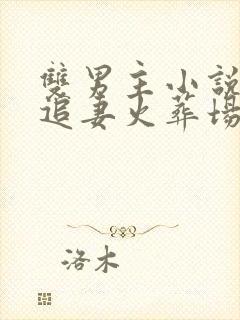 雙男主小說
追妻火葬場
洛木